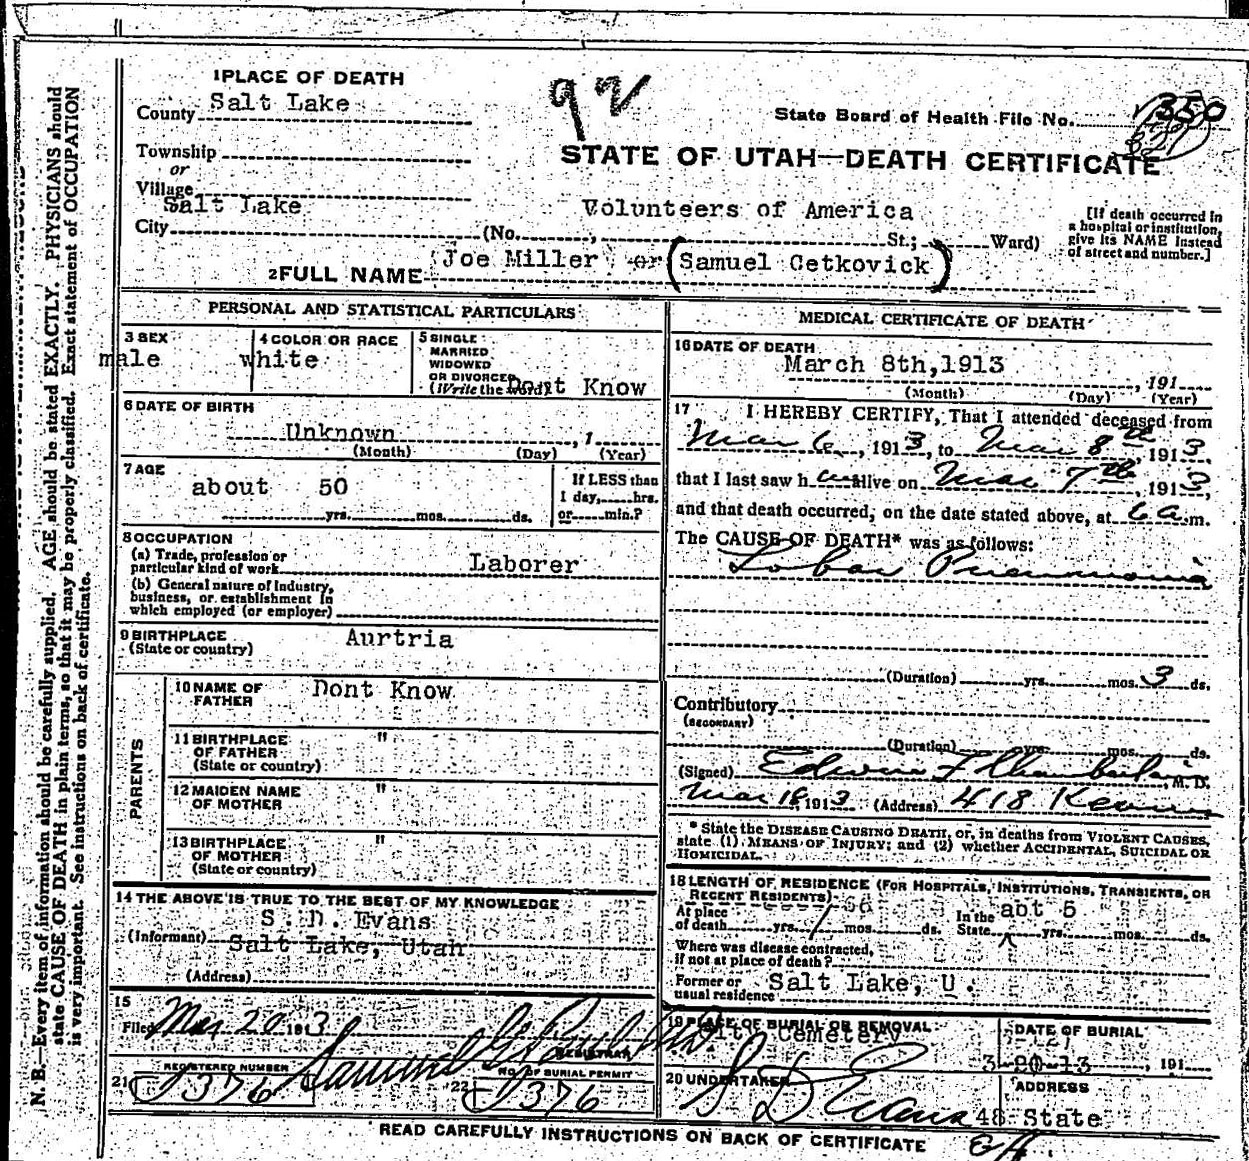 1 PLACE OF DEATH
County Salt Lake
92
State Board of Health File No. 350
Township
or
Village
STATE OF UTAH—DEATH CERTIFICATE
Salt Lake
Volunteers of America
City (No. , St.; Ward)
[If death occurred in
a hospital or institution,
give its NAME instead
of street and number.]
2 FULL NAME Joe Miller or (Samuel Cetkovick)
PERSONAL AND STATISTICAL PARTICULARS
3 SEX
male
4 COLOR OR RACE
white
5 SINGLE
MARRIED
WIDOWED
OR DIVORCED
(Write the word) Dont Know
6 DATE OF BIRTH
Unknown , 1
(Month) (Day) (Year)
7 AGE
about 50
yrs. mos. ds.
If LESS than
1 day, hrs.
or min.?
8 OCCUPATION
(a) Trade, profession or
particular kind of work Laborer
(b) General nature of Industry,
business, or establishment in
which employed (or employer)
9 BIRTHPLACE
(State or country) Aurtria
PARENTS
10 NAME OF
FATHER Dont Know
11 BIRTHPLACE
OF FATHER "
(State or country)
12 MAIDEN NAME
OF MOTHER "
13 BIRTHPLACE
OF MOTHER "
(State or country)
14 THE ABOVE IS TRUE TO THE BEST OF MY KNOWLEDGE
S. D. Evans
(Informant) Salt Lake, Utah
(Address)
15
Filed Mar 20 1913
REGISTRAR
REGISTERED NUMBER
21 376
NO. OF BURIAL PERMIT
22 376
MEDICAL CERTIFICATE OF DEATH
16 DATE OF DEATH
March 8th, 1913
, 191
(Month) (Day) (Year)
17 I HEREBY CERTIFY, That I attended deceased from
Mar 6, 1913, to Mar 8th 1913,
that I last saw h alive on Mar 7th, 1913,
and that death occurred, on the date stated above, at 6 a.m.
The CAUSE OF DEATH* was as follows:
Lobar Pneumonia
(Duration) yrs. mos. 3 ds.
Contributory
(SECONDARY)
(Duration) yrs. mos. ds.
(Signed) Edwin F Chamberlain, M. D.
Mar 18 1913 (Address) 418 Kearns
* State the DISEASE CAUSING DEATH, or, in deaths from VIOLENT CAUSES,
state (1) MEANS OF INJURY; and (2) whether ACCIDENTAL, SUICIDAL OR
HOMICIDAL.
18 LENGTH OF RESIDENCE (FOR HOSPITALS, INSTITUTIONS, TRANSIENTS, OR
RECENT RESIDENTS)
At place
of death yrs. mos. ds.
In the
State abt 5 yrs. mos. ds.
Where was disease contracted,
if not at place of death?
Former or
usual residence Salt Lake, U.
19 PLACE OF BURIAL OR REMOVAL
City Cemetery
DATE OF BURIAL
3-20-13 , 191
20 UNDERTAKER
S D Evans
ADDRESS
48 State
READ CAREFULLY INSTRUCTIONS ON BACK OF CERTIFICATE
N. B.—Every item of information should be carefully supplied. AGE should be stated EXACTLY. PHYSICIANS should
state CAUSE OF DEATH in plain terms, so that it may be properly classified. Exact statement of OCCUPATION
is very important. See instructions on back of certificate.